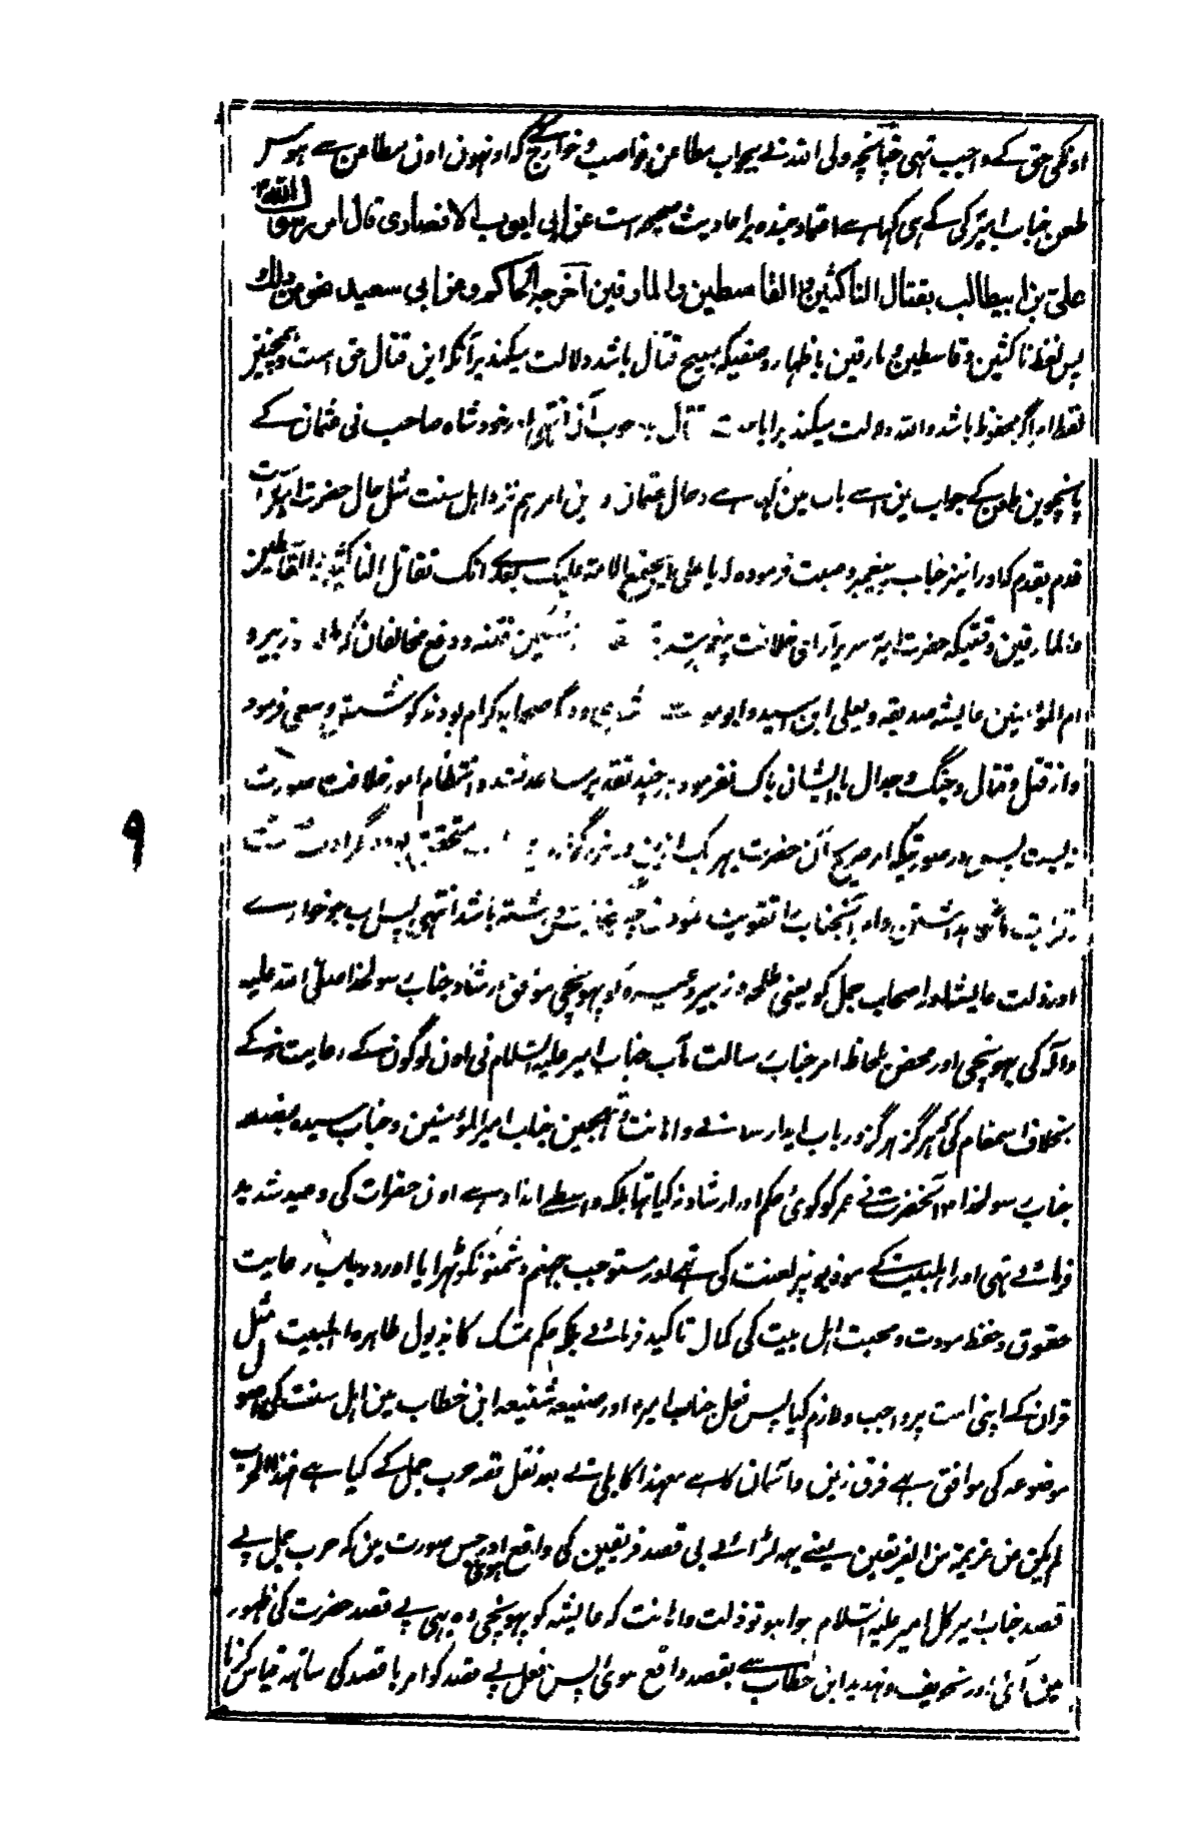 اونکی حق کے واجب تہی چنانچہ ولی اللہ نے بجواب مطاعن نواصب و خوارج کے کہ اونہون اون مطاعن سے ہوس
طعن جناب امیر کی کے ہی کہا ہے اعتماد بندہ بر احادیث صحیحہ است عن ابی ایوب الانصاری قال امر رسول اللہ
علی بن ابیطالب بقتال الناکثین و القاسطین و المارقین اخرجہ الحاکم و عن ابی سعید نحو من ذلک
پس لفظ ناکثین و قاسطین و مارقین باظہار وصفیکہ مبیح قتال باشد دلالت میکند بر آنکہ این قتال حق است و ہمچنین
لفظ امر اگر محفوظ باشد واللہ دلالت میکند بر اباحت قتال یا وجوب آن انتہی اور خود شاہ صاحب نی عثمان کے
پانچوین طعن کے جواب مین اسے باب مین کہا ہے و حال عثمان درین امر ہم نزد اہل سنت مثل حال حضرت امیر است
قدم بقدم کہ اورا نیز جناب پیغمبر وصیت فرمودہ یا علی لا یجتمع الامة علیک بعدی انک تقاتل الناکثین و القاسطین
والمارقین وقتیکہ حضرت امیر سریر آرای خلافت پیغمبر تسکین فتنہ و دفع مخالفان کہ طلحہ و زبیر و
ام المؤمنین عایشہ صدیقہ و یعلی ابن و ابو و دیگر صحابہ کرام بودند کوشش و سعی فرمود
و از قتل و قتال و جنگ و جدال با ایشان باک نفرمود ہر چند تقدیر مساعد نشد و انتظام امور خلافت صورت
نبست پس در صورتیکہ امر صریح آن حضرت بہر یک ازین دو بزرگوار متحقق بود دیگر اورا
انتہی پس اب جو خواری
اور ذلت عایشہ اور اصحاب جمل کو یعنی طلحہ و زبیر وغیرہ کو پہونچی موافق ارشاد جناب رسولخدا صلی اللہ علیہ
وآلہ کی پہونچی اور محض بلحاظ امر جناب رسالت مآب جناب امیر علیہ السلام نی اون لوگون کے رعایت نہ کے
بخلاف اسمقام کی کہ ہرگز ہرگز در باب ایذا رسانے و اہانت جناب امیر المؤمنین و جناب سیدہ بضعہ
جناب رسولخدا آنحضرت نے عمر کو کوئی حکم اور ارشاد نہ کیا تہا بلکہ واسطے ایذا دہے اون حضرات کی وعید شدید
فرمائے تہی اور اہلبیت کے موذیونپر لعنت کی تہے اور مستوجب جہنم دشمنونکو ٹہرایا اور درباب رعایت
حقوق و حفظ مودت و محبت اہل بیت کی کمال تاکید فرمائے بلکہ حکم تمسک کا بذیول طاہرہ اہلبیت مثل
قران کے اپنی امت پر واجب و لازم کیا پس فعل جناب امیر اور صنیعہ شنیعہ ابن خطاب مین اہل سنت کی اصول
موضوعہ کی موافق بہی فرق زمین و آسمان کا ہے معہذا کابلی نے بعد نقل قصہ حرب جمل کے کہا ہے فہذا الحرب
لم یکن عن عزیمة من الفریقین یعنے یہہ لڑائے بی قصد فریقین کی واقع ہوئی اور جس صورت مین کہ حرب جمل بے
قصد جناب امیر کل امیر علیہ السلام ہوا ہو تو ذلت و اہانت کہ عایشہ کو پہونچی وہ بہی بے قصد حضرت کی ظہور
مین آئی اور تخویف و تہدید ابن خطاب سے بقصد واقع ہوئی پس فعل بے قصد کو امر با قصد کی ساتہہ قیاس کرنا
۹